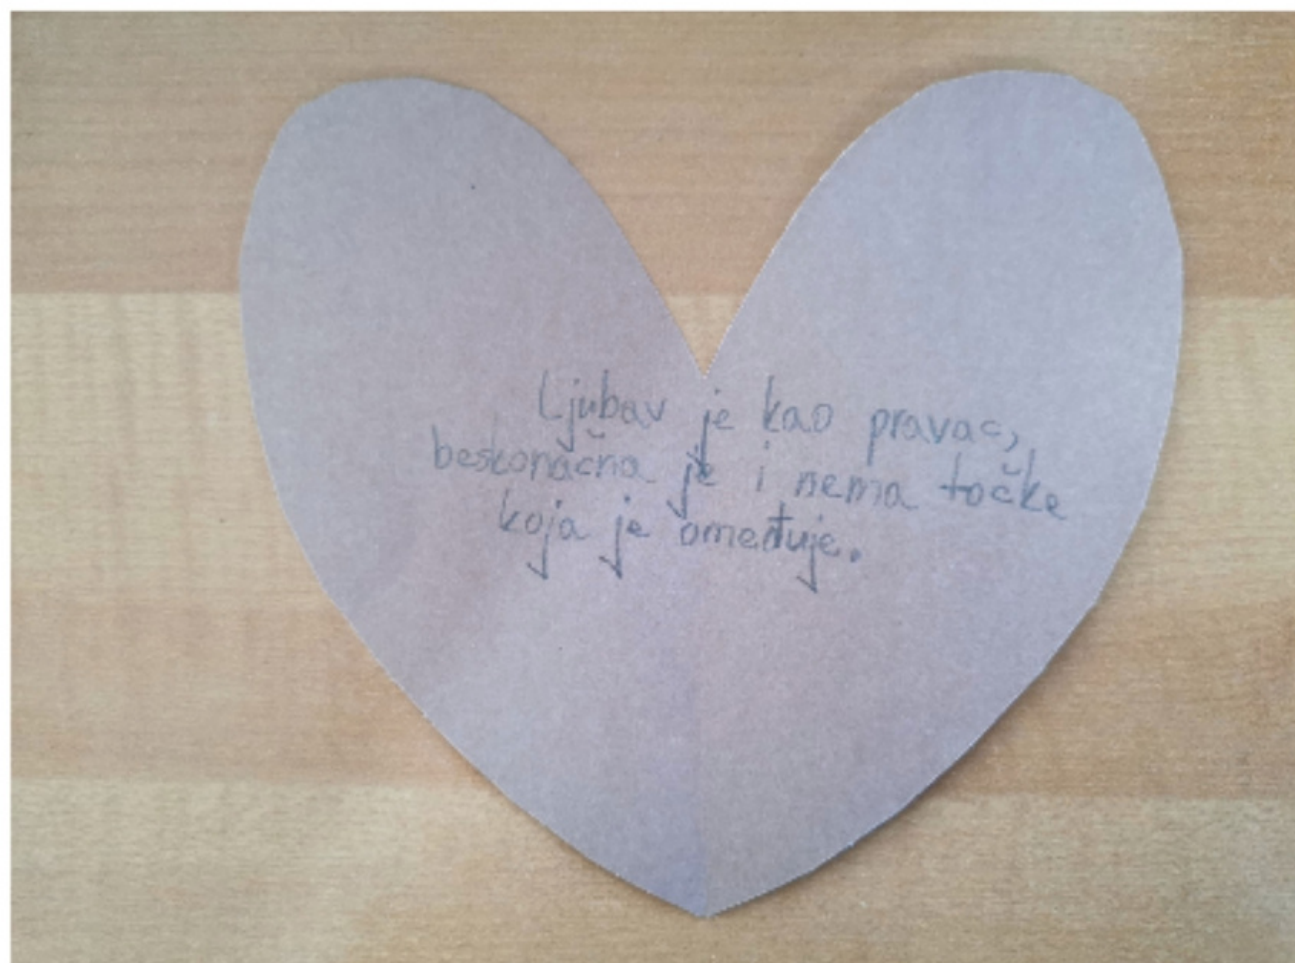 Ljubav je kao pravac,
beskonačna je i nema točke
koja je omeđuje.